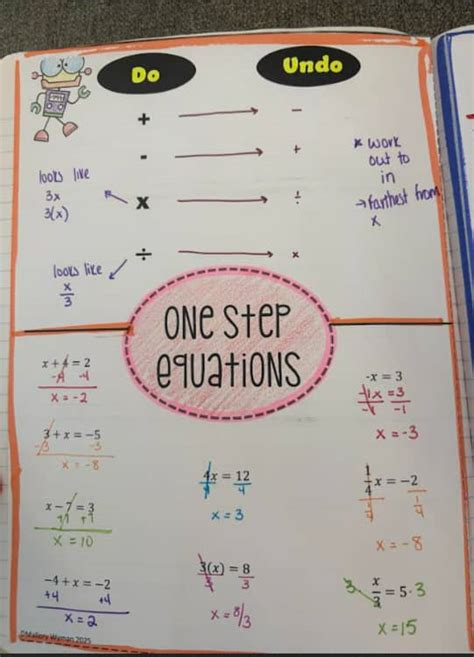 Do
Undo
+ → −
- → +
x → ÷
÷ → x
looks like
3x
3(x)
looks like
x/3
* work
out to
in
→ farthest from
x
ONE STEP
EQUATIONS
x + 4 = 2
-4 -4
x = -2
3 + x = −5
-3 -3
x = -8
x − 7 = 3
+7 +7
x = 10
−4 + x = −2
+4 +4
x = 2
4x = 12
4 4
x = 3
3(x) = 8
3 3
x = 8/3
-x = 3
-1x = 3
-1 -1
x = -3
1/4 x = −2
1/4 1/4
x = -8
3 · x/3 = 5 · 3
x = 15
©Mallory Wyman 2025